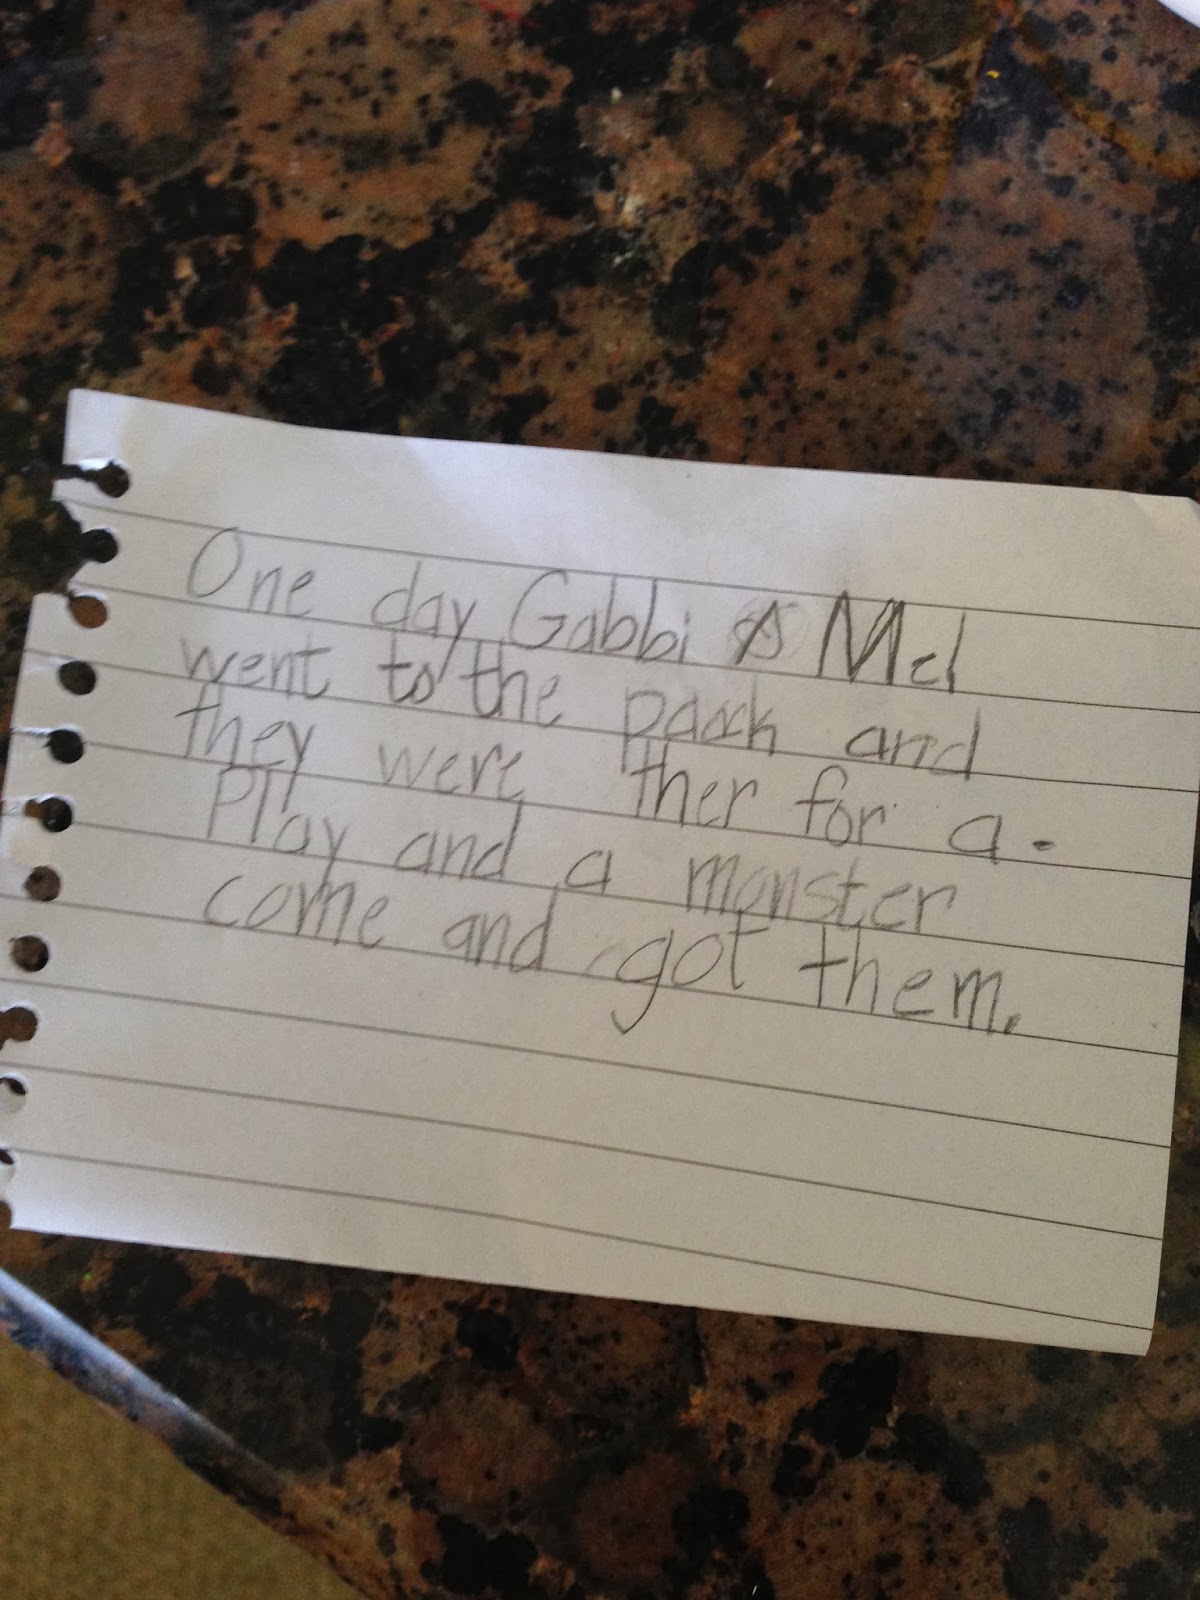 One day Gabbi & Mel
went to the park and
they were ther for a.
Play and a monster
come and got them.